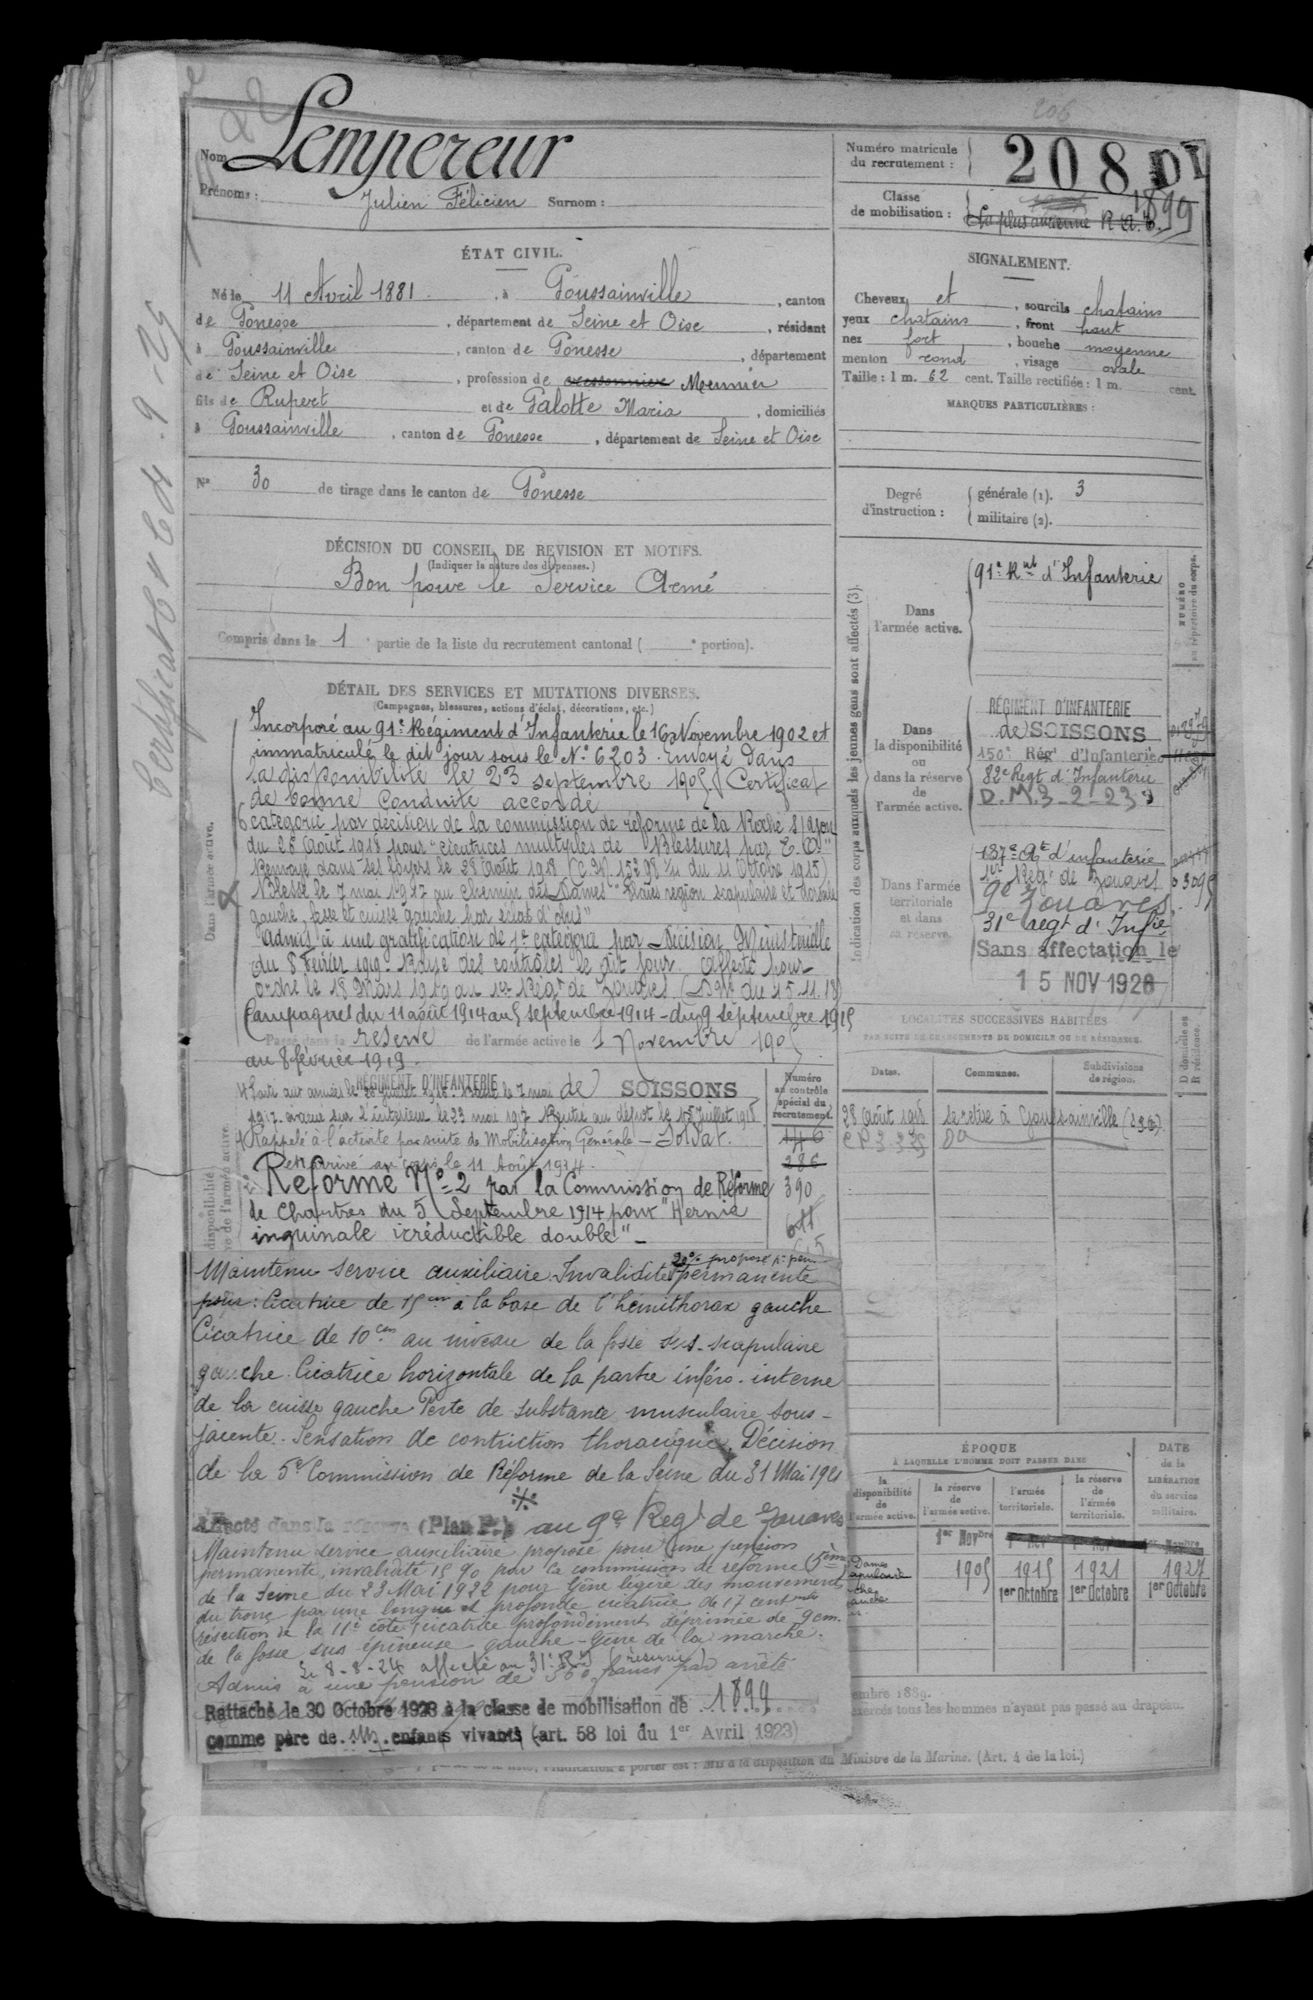 Nom Lempereur
Prénoms : Julien Félicien Surnom :
Numéro matricule du recrutement : 208 DI
Classe de mobilisation : La plus ancienne R.A.T. 1899
ÉTAT CIVIL.
Né le 11 Avril 1881 , à Goussainville , canton
de Gonesse , département de Seine et Oise , résidant
à Goussainville , canton de Gonesse , département
de Seine et Oise , profession de Meunier
fils de Rupert et de Galotte Maria , domiciliés
à Goussainville , canton de Gonesse , département de Seine et Oise
N° 30 de tirage dans le canton de Gonesse
DÉCISION DU CONSEIL DE REVISION ET MOTIFS.
(Indiquer la nature des dispenses.)
Bon pour le Service Armé
Compris dans la 1 e partie de la liste du recrutement cantonal ( e portion).
SIGNALEMENT.
Cheveux et , sourcils chatains
yeux chatains , front haut
nez fort , bouche moyenne
menton rond , visage ovale
Taille : 1 m. 62 cent. Taille rectifiée : 1 m. cent.
MARQUES PARTICULIÈRES :
Degré d'instruction : générale (1). 3
militaire (2).
DÉTAIL DES SERVICES ET MUTATIONS DIVERSES.
(Campagnes, blessures, actions d'éclat, décorations, etc.)
Dans l'armée active.
Incorporé au 91e Régiment d'Infanterie le 16 Novembre 1902 et
immatriculé le dit jour sous le N° 6203. Envoyé dans
la disponibilité le 23 septembre 1905. Certificat
de bonne conduite accordé
catégorie par décision de la commission de réforme de la Roche s/yon
du 28 Août 1918 pour "cicatrices multiples de blessures par E.O."
Renvoyé dans ses foyers le 28 Août 1918 (C.M. 15298 1/11 du 11 Octobre 1915)
Blessé le 7 mai 1917 au Chemin des Dames "Plaies région scapulaire et dorsale
gauche, fesse et cuisse gauche par éclat d'obus"
Admis à une gratification de 7e catégorie par Décision Ministérielle
du 8 février 1919. Rayé des contrôles le dit jour. Affecté pour
ordre le 18 Mars 1919 au 1er Régt de Zouaves (D.M. du 15.11.18)
Campagnes du 11 août 1914 au 5 septembre 1914 - du 9 septembre 1915
Passé dans la réserve de l'armée active le 1 Novembre 1905
au 8 février 1919.
RÉGIMENT D'INFANTERIE de SOISSONS
1917. évacué sur l'intérieur le 23 mai 1917 Rentré au dépôt le 15 Juillet 1918
Rappelé à l'activité par suite de Mobilisation Générale - Soldat.
et arrivé au corps le 11 Août 1914.
Réformé N° 2 par la Commission de Réforme
de Chartres du 5 Septembre 1914 pour "Hernie
inguinale irréductible double" -
Numéro au contrôle spécial du recrutement.
146
286
390
611
Maintenu Service auxiliaire. Invalidité permanente
20% proposé p. pen
pour : Cicatrice de 15 cm à la base de l'hémithorax gauche
Cicatrice de 10 cm au niveau de la fosse sus-scapulaire
gauche. Cicatrice horizontale de la partie inféro-interne
de la cuisse gauche Perte de substance musculaire sous-
jacente. Sensation de contriction thoracique. Décision
de la 5e Commission de Réforme de la Seine du 31 Mai 1921
Affecté dans la réserve (Plan P.) au 9e Régt de Zouaves
Maintenu service auxiliaire proposé pour une pension
permanente, invalidité 15 % par la commission de réforme (5ème)
de la Seine du 23 Mai 1922 pour Gêne légère des mouvements
du tronc par une longue et profonde cicatrice de 17 cent
résection de la 11e côte, cicatrice profondément déprimée de 9 cm.
de la fosse sus épineuse gauche - Gêne de la marche.
Le 8-8-24 affecté au 31e R.I. (réserve)
Admis à une pension de 360 francs par arrêté
Rattaché le 30 Octobre 1923 à la classe de mobilisation de 1899
comme père de enfants vivants (art. 58 loi du 1er Avril 1923)
Indication des corps auxquels les jeunes gens sont affectés (3).
NUMÉRO au répertoire du corps.
Dans l'armée active.
91e Rgt d'Infanterie
Dans la disponibilité ou dans la réserve de l'armée active.
RÉGIMENT D'INFANTERIE
de SOISSONS
150e Régt d'Infanterie
82e Regt d'Infanterie
D.M. 3-2-23
Dans l'armée territoriale et dans sa réserve.
187e Rt d'infanterie
1er Régt de Zouaves 03095
9e Zouaves
31e Regt d'Infie
Sans affectation le
15 NOV 1926
LOCALITÉS SUCCESSIVES HABITÉES
PAR SUITE DE CHANGEMENTS DE DOMICILE OU DE RÉSIDENCE.
Dates. Communes. Subdivisions de région. D domicile ou R résidence.
28 Août 1918 se retire à Goussainville
ÉPOQUE
À LAQUELLE L'HOMME DOIT PASSER DANS
la disponibilité de l'armée active. la réserve de l'armée active. l'armée territoriale. la réserve de l'armée territoriale.
DATE de la LIBÉRATION du service militaire.
1er Novbre 1905
1915 1er Octobre
1921 1er Octobre
1927 1er Octobre
embre 1889.
exercés tous les hommes n'ayant pas passé au drapeau.
l'indication à porter est : Mis à la disposition du Ministre de la Marine. (Art. 4 de la loi.)